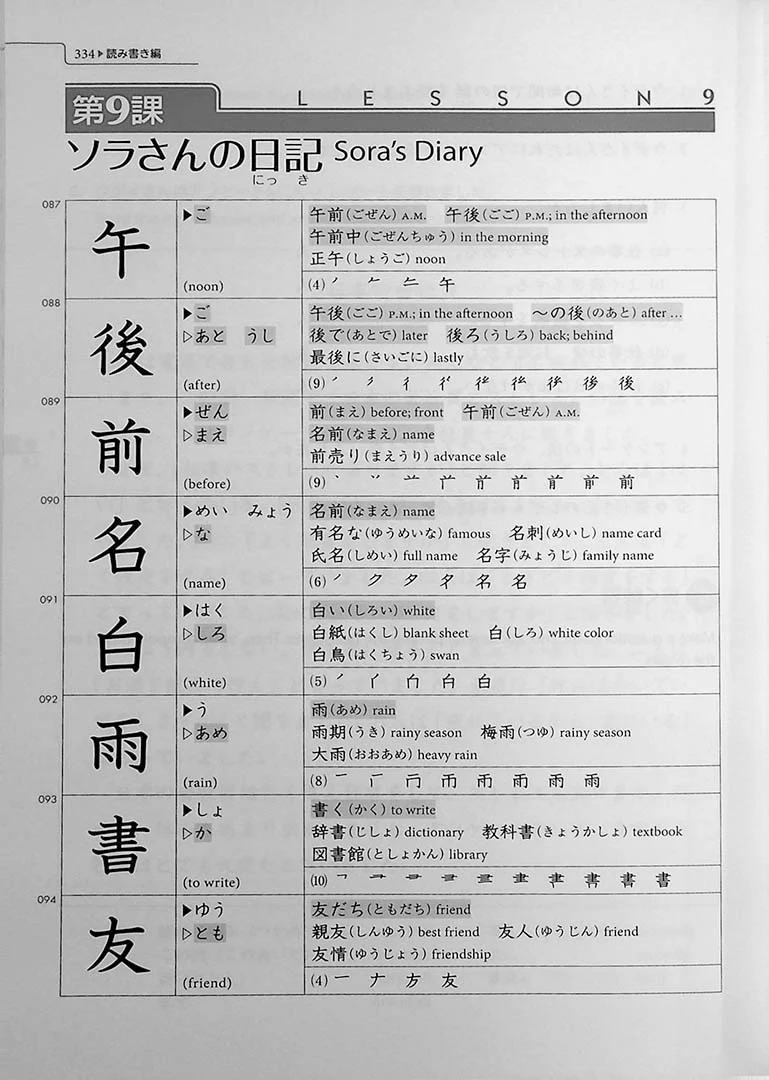 334▶読み書き編
第9課 LESSON 9
ソラさんの日記 Sora's Diary
にっき
087
午
▶ご
(noon)
午前(ごぜん) A.M. 午後(ごご) P.M.; in the afternoon
午前中(ごぜんちゅう) in the morning
正午(しょうご) noon
(4) 午
088
後
▶ご
▷あと うし
(after)
午後(ごご) P.M.; in the afternoon ～の後(のあと) after ...
後で(あとで) later 後ろ(うしろ) back; behind
最後に(さいごに) lastly
(9) 後
089
前
▶ぜん
▷まえ
(before)
前(まえ) before; front 午前(ごぜん) A.M.
名前(なまえ) name
前売り(まえうり) advance sale
(9) 前
090
名
▶めい みょう
▷な
(name)
名前(なまえ) name
有名な(ゆうめいな) famous 名刺(めいし) name card
氏名(しめい) full name 名字(みょうじ) family name
(6) ノ ク タ 名
091
白
▶はく
▷しろ
(white)
白い(しろい) white
白紙(はくし) blank sheet 白(しろ) white color
白鳥(はくちょう) swan
(5) 白
092
雨
▶う
▷あめ
(rain)
雨(あめ) rain
雨期(うき) rainy season 梅雨(つゆ) rainy season
大雨(おおあめ) heavy rain
(8) 雨
093
書
▶しょ
▷か
(to write)
書く(かく) to write
辞書(じしょ) dictionary 教科書(きょうかしょ) textbook
図書館(としょかん) library
(10) 書
094
友
▶ゆう
▷とも
(friend)
友だち(ともだち) friend
親友(しんゆう) best friend 友人(ゆうじん) friend
友情(ゆうじょう) friendship
(4) 一 ナ 方 友